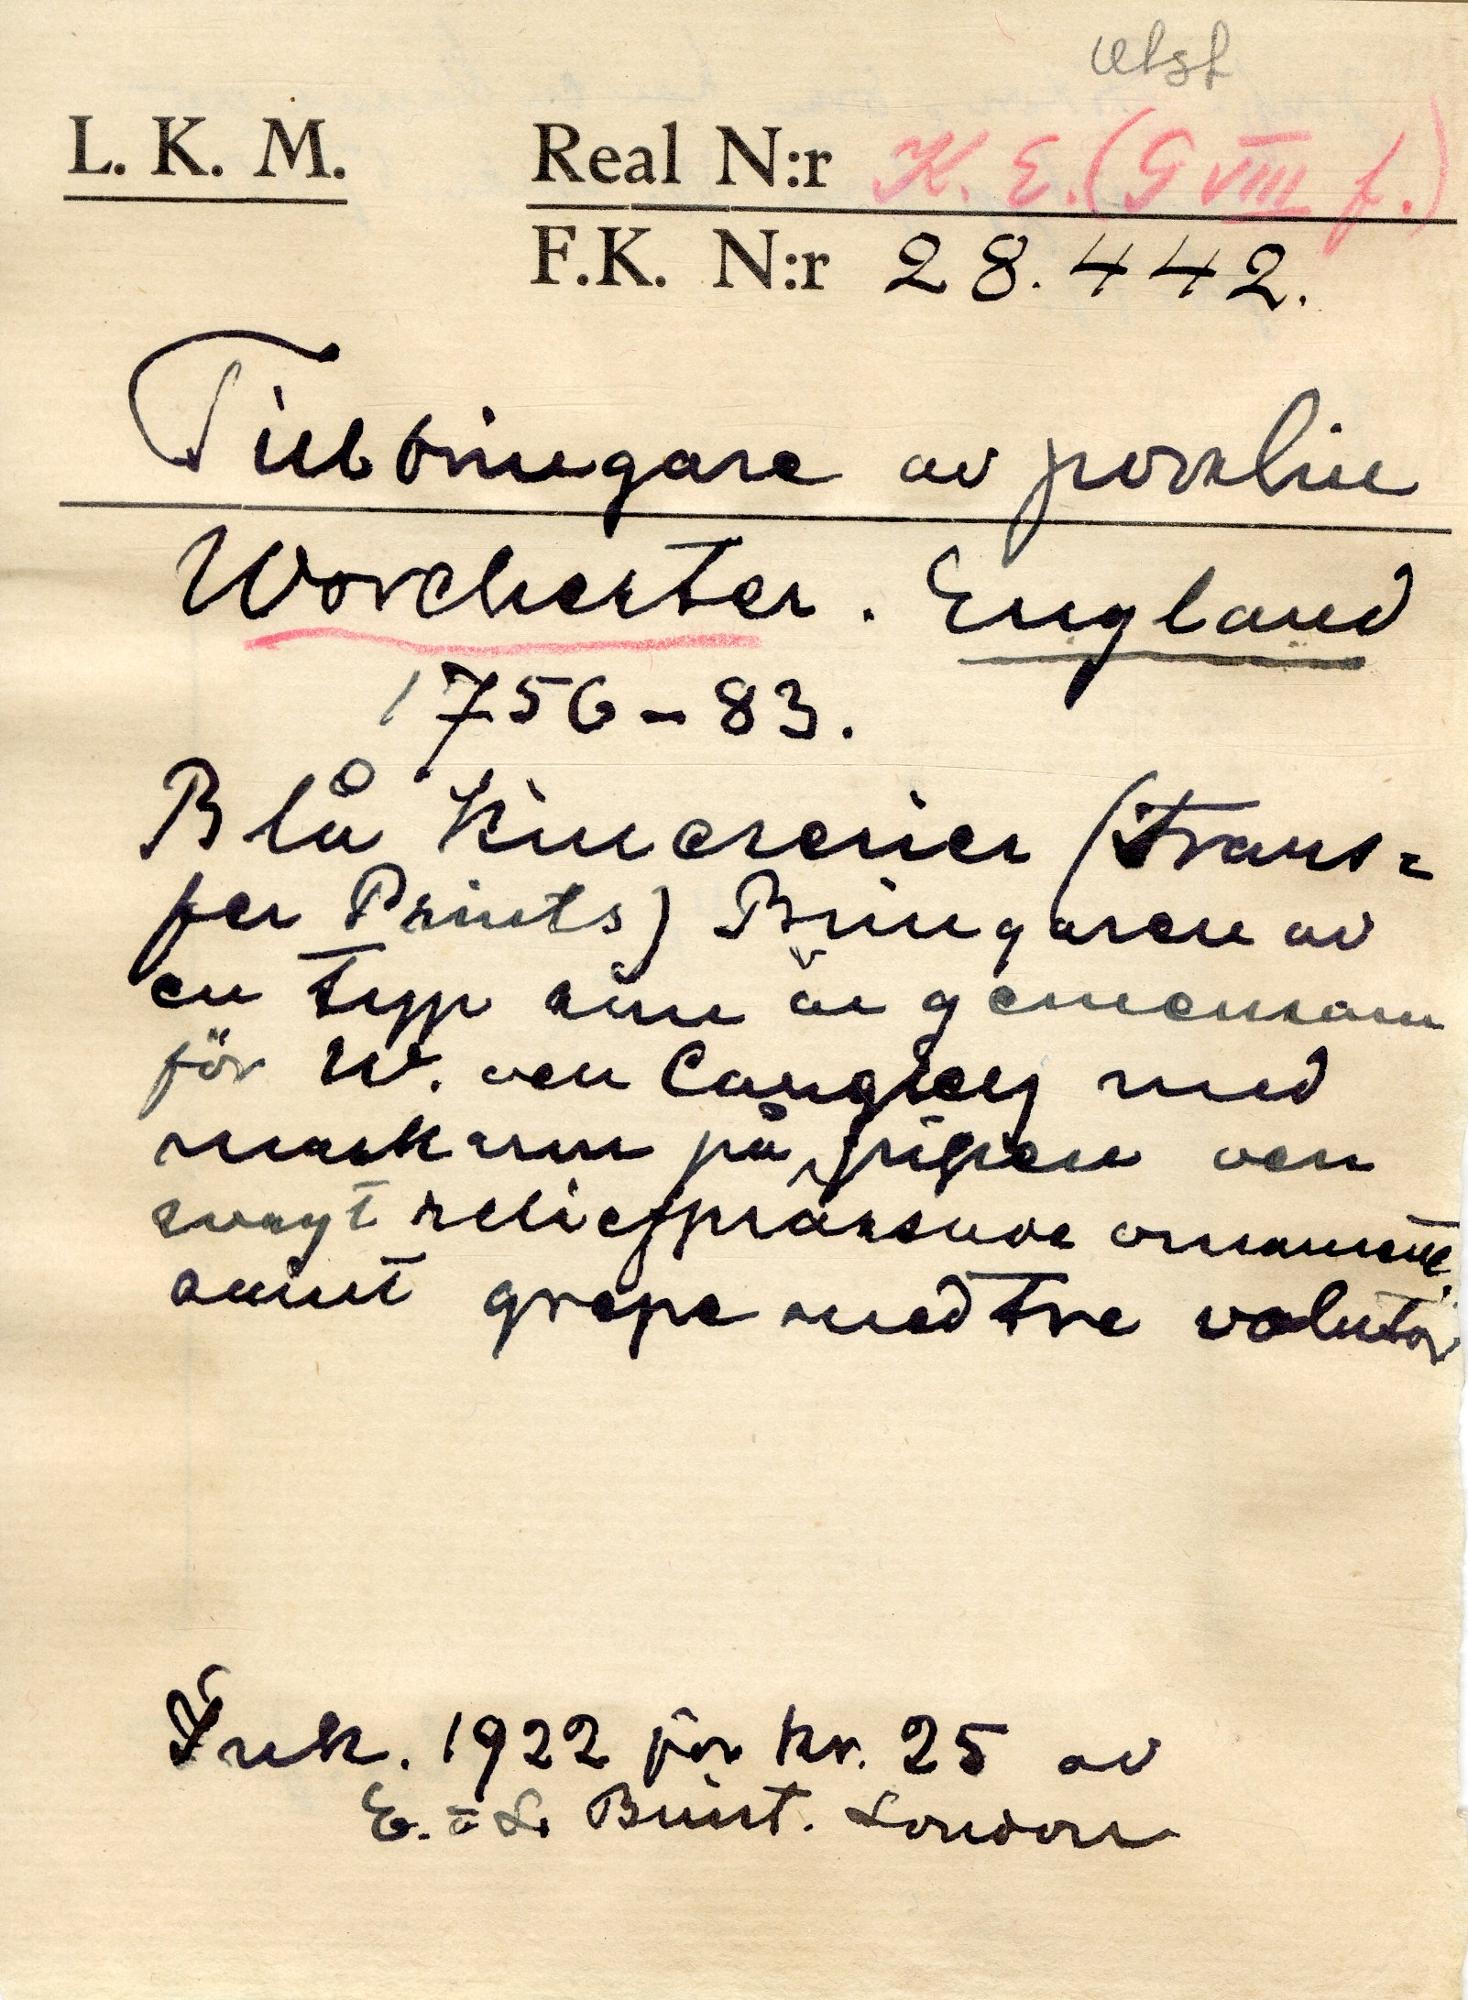 Utst
L. K. M. Real N:r K. E. (G VIII f.)
F.K. N:r 28.442.
Tillbringare av porslin
Worchester. England
1756-83.
Blå kineserier (Trans=
fer Prints) Bringaren av
en typ som är gemensam
för W. och Caugley med
maskaron på pipen och
svagt reliefpressade ornament
samt grepe med tre volutor
Ink. 1922 för kr. 25 av
E. & L. London